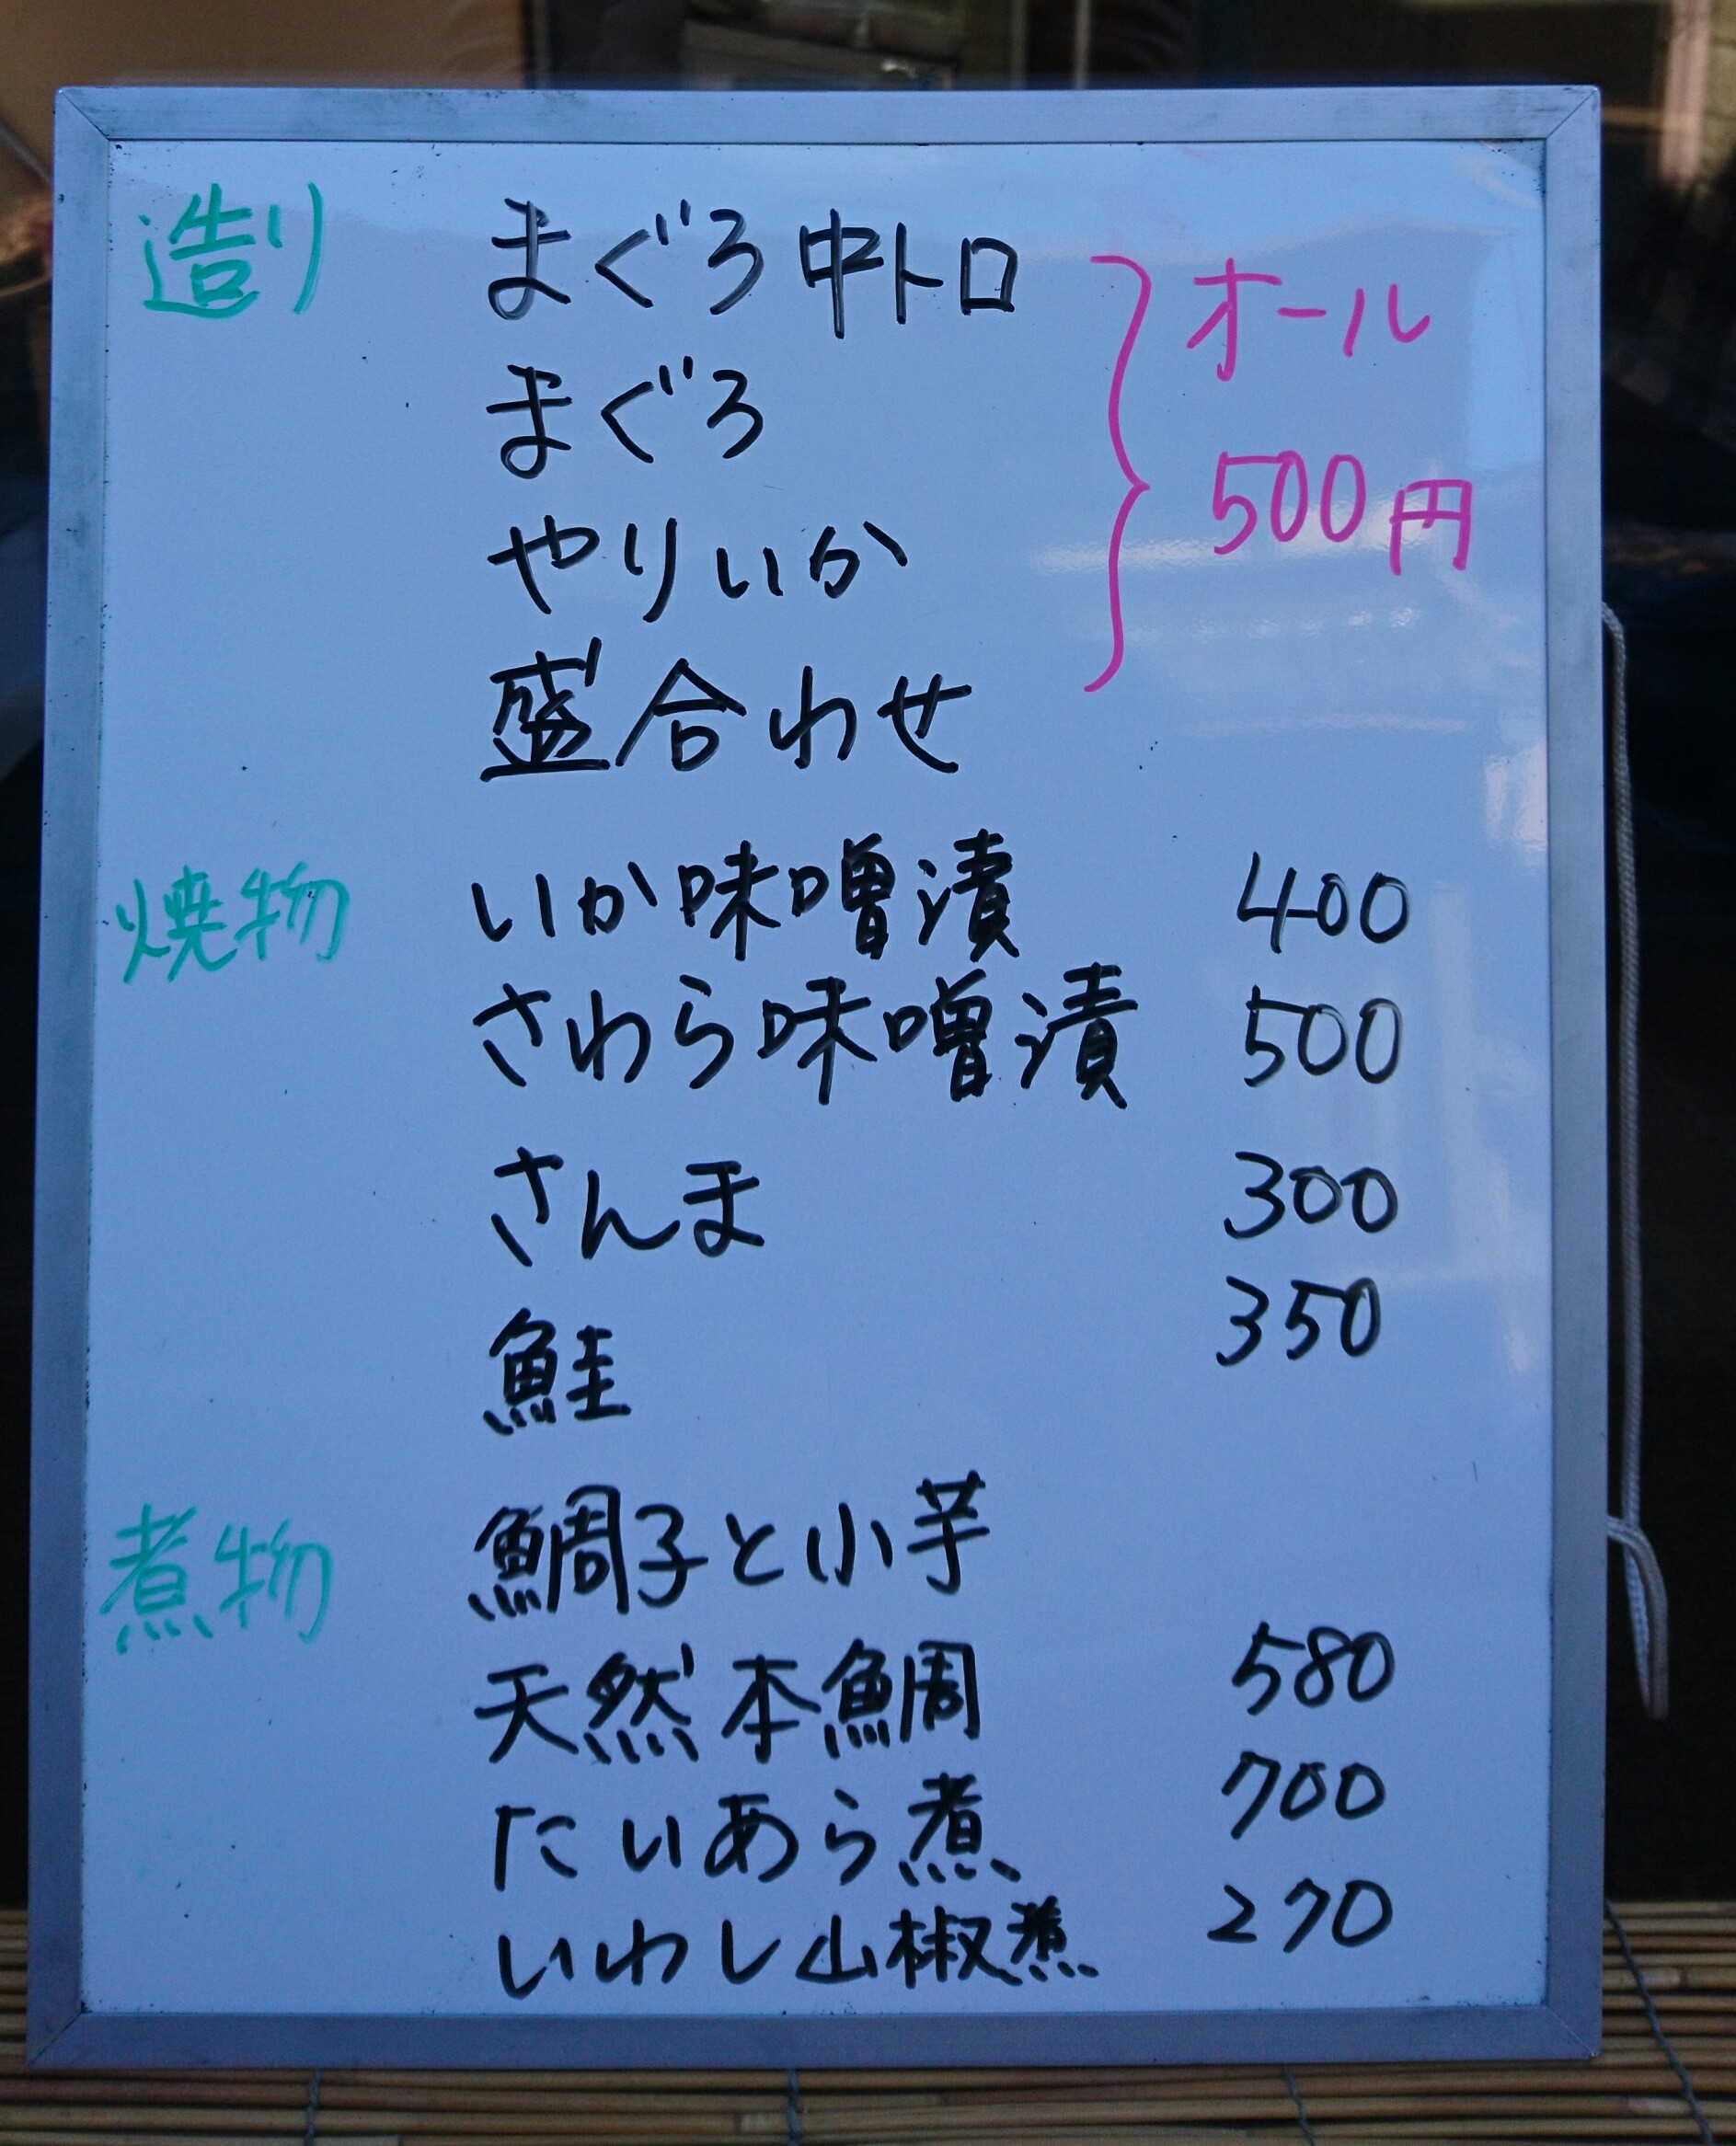 造り まぐろ中トロ
まぐろ
やりいか
盛合わせ
オール
500円
焼物 いか味噌漬 400
さわら味噌漬 500
さんま 300
鮭 350
煮物 鯛子と小芋
天然本鯛 580
たいあら煮 700
いわし山椒煮 270